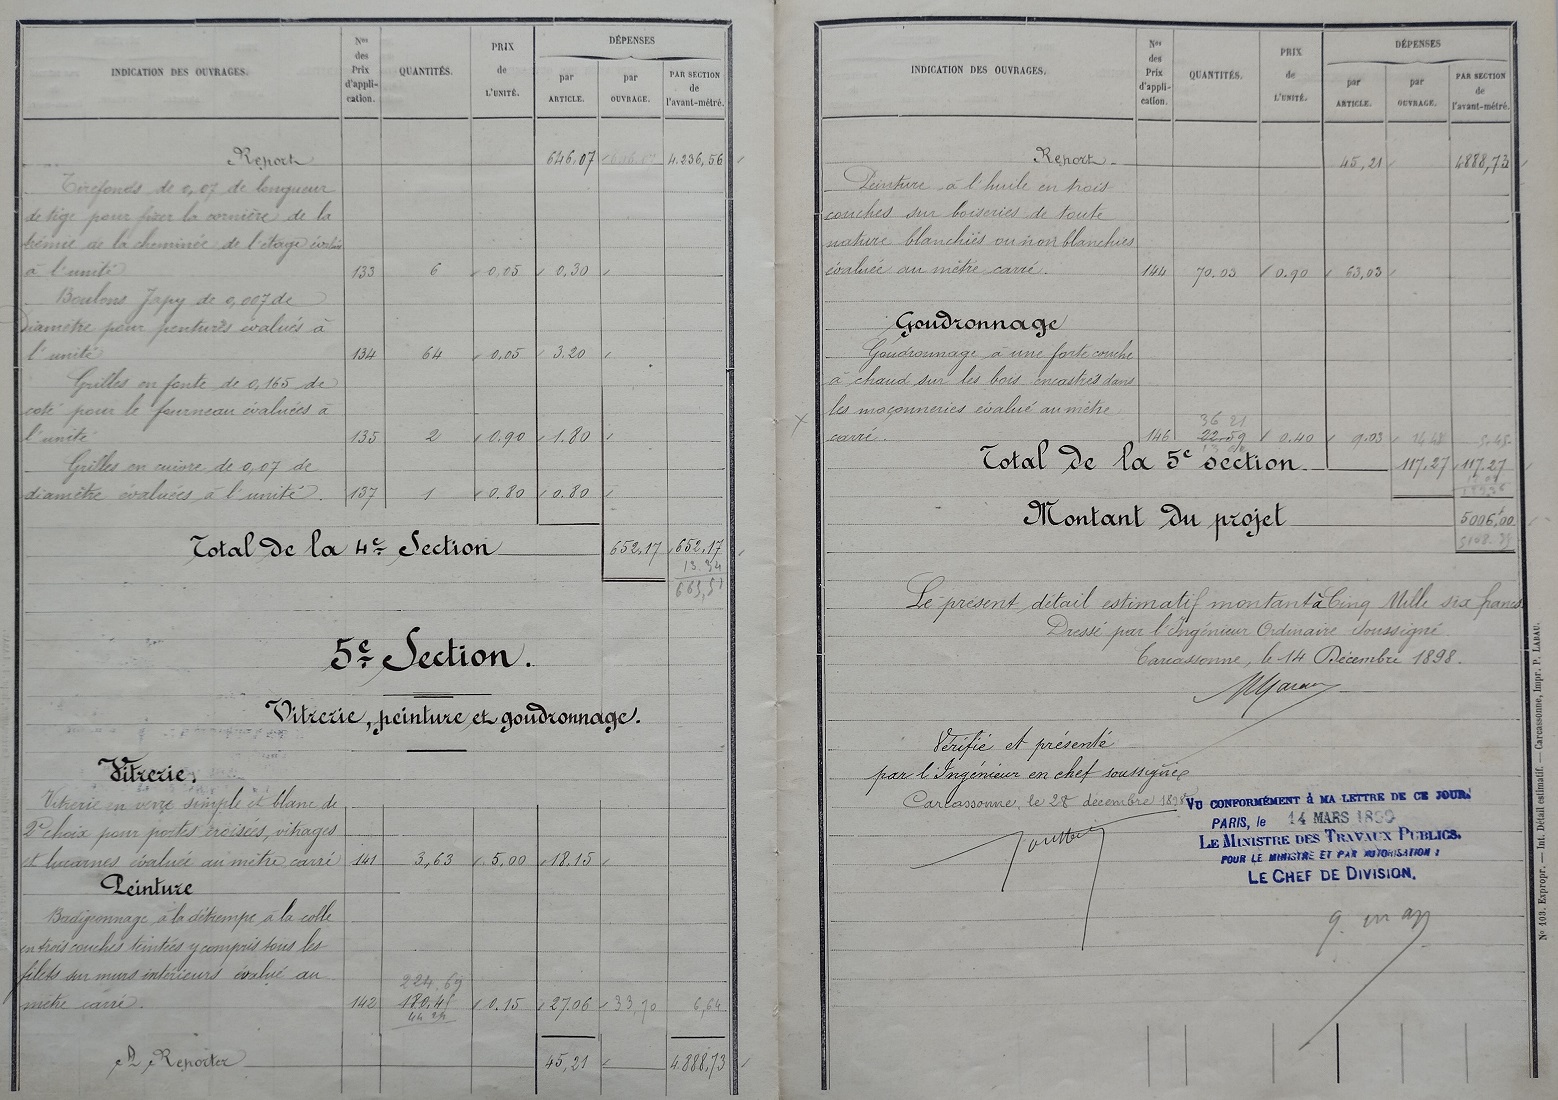 INDICATION DES OUVRAGES.
Nos des Prix d'application.
QUANTITÉS.
PRIX de L'UNITÉ.
DÉPENSES
par ARTICLE.
par OUVRAGE.
PAR SECTION de l'avant-métré.
Report 646,07 4.236,56
Tirefonds de 0,07 de longueur
de tige pour fixer la cornière de la
trémie de la cheminée de l'étage évalués
à l'unité 133 6 0,05 0.30
Boulons Japy de 0,007 de
diamètre pour pentures évalués à
l'unité 134 64 0,05 3.20
Grilles en fonte de 0,165 de
coté pour le fourneau évaluées à
l'unité 135 2 0.90 1.80
Grilles en cuivre de 0,07 de
diamètre évaluées à l'unité. 137 1 0.80 0.80
Total de la 4e Section 652,17 652,17
13.34
665,51
5e Section.
Vitrerie, peinture et goudronnage.
Vitrerie.
Vitrerie en verre simple et blanc de
2e choix pour portes croisées, vitrages
et lucarnes évaluée au mètre carré 141 3,63 5.00 18.15
Peinture
Badigeonnage à la détrempe à la colle
en trois couches teintées y compris tous les
filets sur murs intérieurs évalué au
224.69
mètre carré. 142 180.45 0.15 27.06 33,70 6,64
44 24
A Reporter 45,21 4.888,73
INDICATION DES OUVRAGES.
Nos des Prix d'application.
QUANTITÉS.
PRIX de L'UNITÉ.
DÉPENSES
par ARTICLE.
par OUVRAGE.
PAR SECTION de l'avant-métré.
Report 45,21 4888,73
Peinture à l'huile en trois
couches sur boiseries de toute
nature blanchies ou non blanchies
évaluée au mètre carré. 144 70.03 0.90 63,03
Goudronnage
Goudronnage à une forte couche
à chaud sur les bois encastrés dans
les maçonneries évalué au mètre
36 21
carré. 146 22.59 0.40 9.03 14 48 5.45
Total de la 5e section 117,27 117.27
Montant du projet 5006f,00
5108.39
Le présent détail estimatif montant à Cinq Mille six francs
Dressé par l'Ingénieur Ordinaire soussigné
Carcassonne, le 14 Décembre 1898.
Vérifié et présenté
par l'Ingénieur en chef soussigné
Carcassonne, le 28 décembre 1898
VU CONFORMÉMENT à MA LETTRE DE CE JOUR.
PARIS, le 14 MARS 1899
LE MINISTRE DES TRAVAUX PUBLICS.
POUR LE MINISTRE ET PAR AUTORISATION :
LE CHEF DE DIVISION.
No 103. Expropr. — Int. Détail estimatif. — Carcassonne, Impr. P. LABAU.